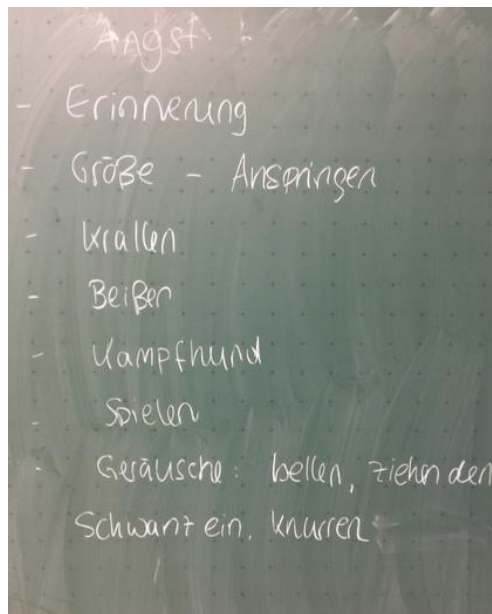 Angst!
- Erinnerung
- Größe - Anspringen
- Krallen
- Beißen
- Kampfhund
- Spielen
- Geräusche: bellen, ziehen den
Schwanz ein, knurren